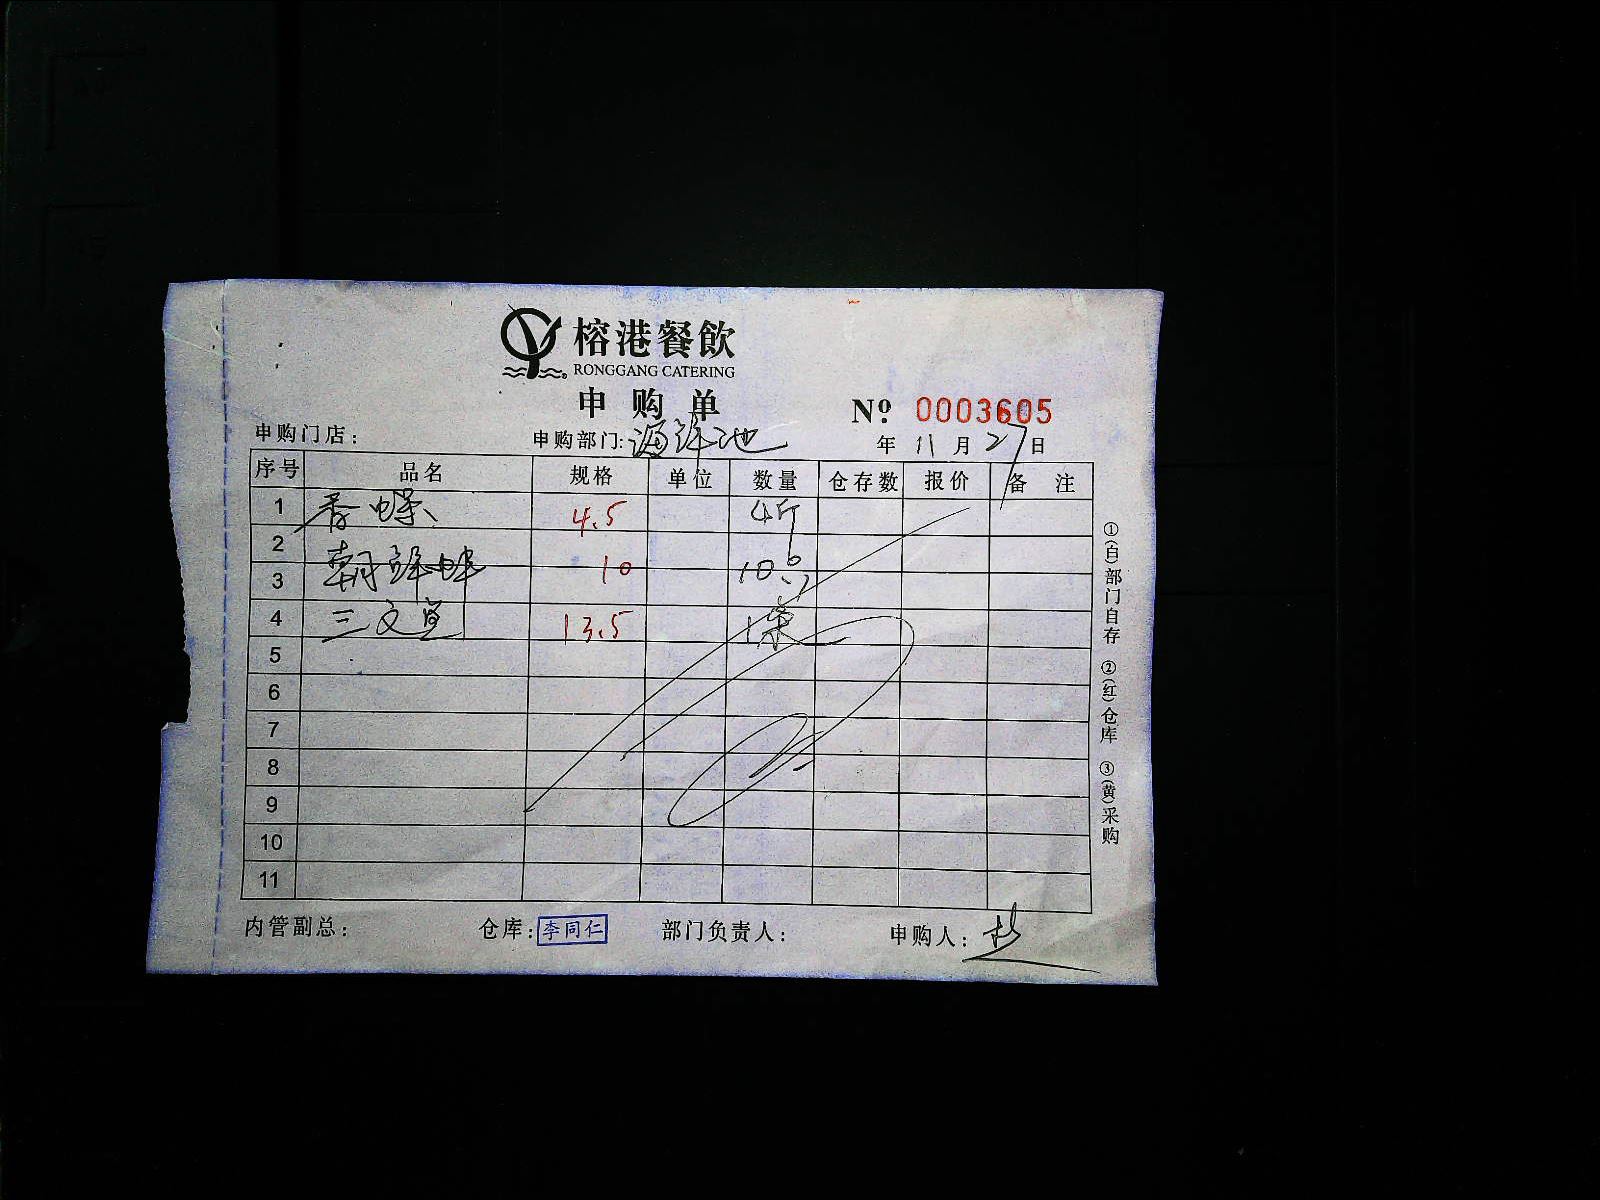 榕港餐飲
RONGGANG CATERING
申购单
№ 0003605
申购门店： 申购部门：海鲜池 年 11 月 27 日
序号 品名 规格 单位 数量 仓存数 报价 备 注
1 香螺 4.5 4斤
2
3 朝鲜蚌 10 10只
4 三文鱼 13.5 1条
5
6
7
8
9
10
11
①(白)部门自存 ②(红)仓库 ③(黄)采购
内管副总： 仓库：李同仁 部门负责人： 申购人：